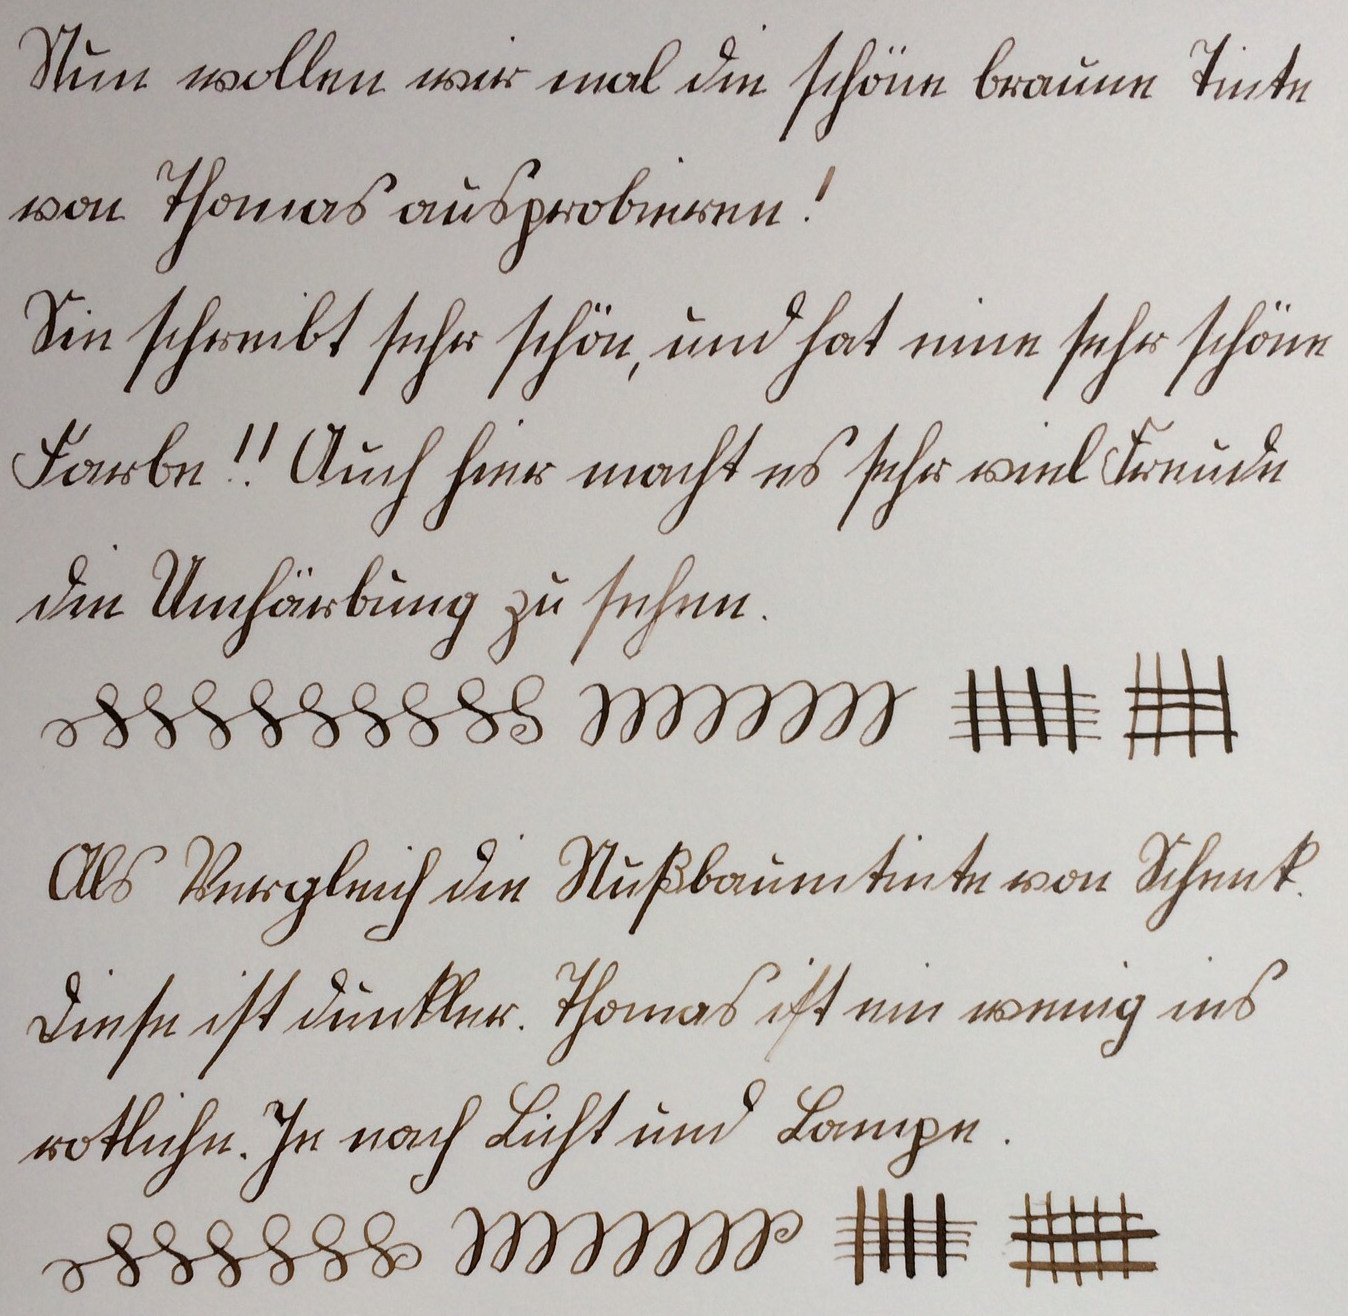 Nun wollen wir mal die schöne braune Tinte
von Thomas ausprobieren!
Sie schreibt sehr schön, und hat eine sehr schöne
Farbe!! Auch hier macht es sehr viel Freude
die Umfärbung zu sehen.
Als Vergleich die Nußbaumtinte von Schenk.
Diese ist dunkler. Thomas ist ein wenig ins
rotliche. Je nach Licht und Lampe.